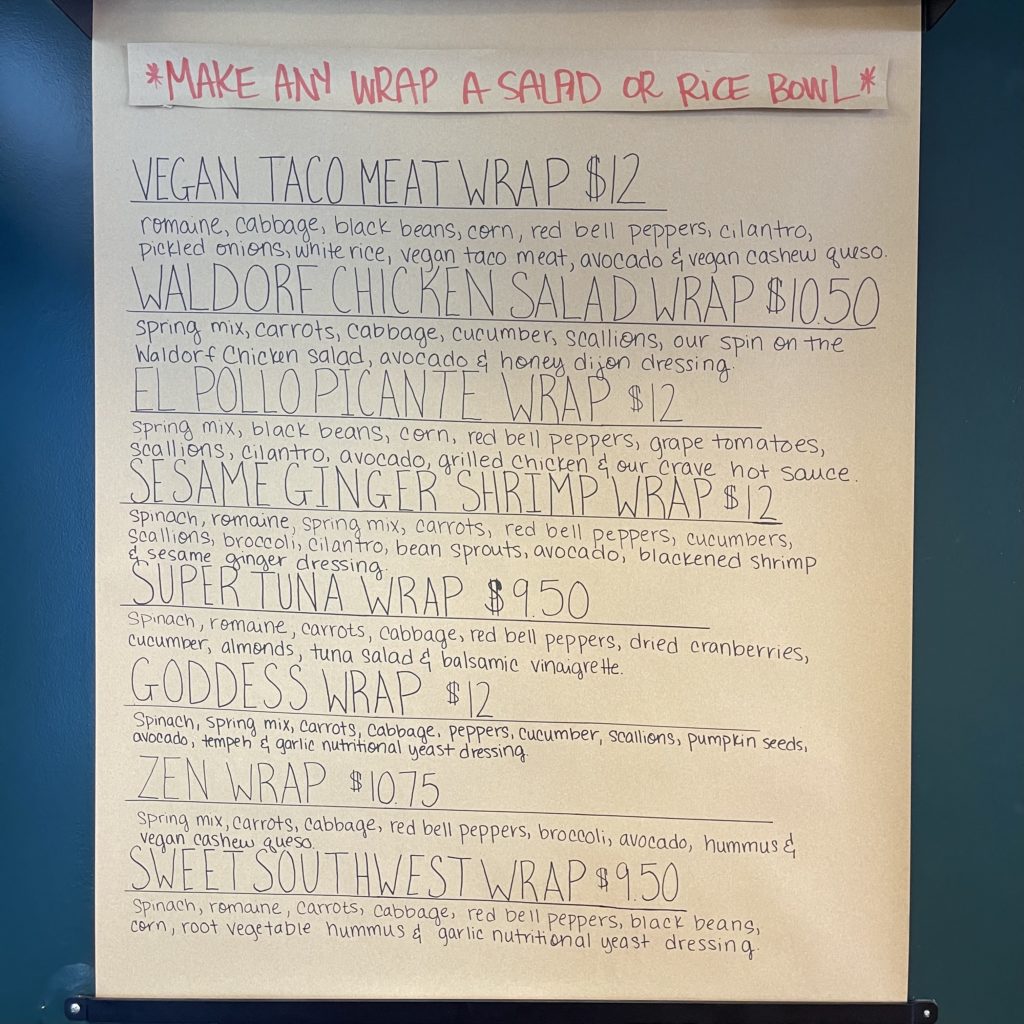 *MAKE ANY WRAP A SALAD OR RICE BOWL*
VEGAN TACO MEAT WRAP $12
romaine, cabbage, black beans, corn, red bell peppers, cilantro,
pickled onions, white rice, vegan taco meat, avocado & vegan cashew queso.
WALDORF CHICKEN SALAD WRAP $10.50
spring mix, carrots, cabbage, cucumber, scallions, our spin on the
Waldorf Chicken salad, avocado & honey dijon dressing.
EL POLLO PICANTE WRAP $12
spring mix, black beans, corn, red bell peppers, grape tomatoes,
scallions, cilantro, avocado, grilled chicken & our crave hot sauce.
SESAME GINGER SHRIMP WRAP $12
Spinach, romaine, spring mix, carrots, red bell peppers, cucumbers,
scallions, broccoli, cilantro, bean sprouts, avocado, blackened shrimp
& sesame ginger dressing.
SUPER TUNA WRAP $9.50
Spinach, romaine, carrots, cabbage, red bell peppers, dried cranberries,
cucumber, almonds, tuna salad & balsamic vinaigrette.
GODDESS WRAP $12
Spinach, spring mix, carrots, cabbage, peppers, cucumber, scallions, pumpkin seeds,
avocado, tempeh & garlic nutritional yeast dressing.
ZEN WRAP $10.75
Spring mix, carrots, cabbage, red bell peppers, broccoli, avocado, hummus &
vegan cashew queso.
SWEET SOUTHWEST WRAP $9.50
Spinach, romaine, carrots, cabbage, red bell peppers, black beans,
corn, root vegetable hummus & garlic nutritional yeast dressing.